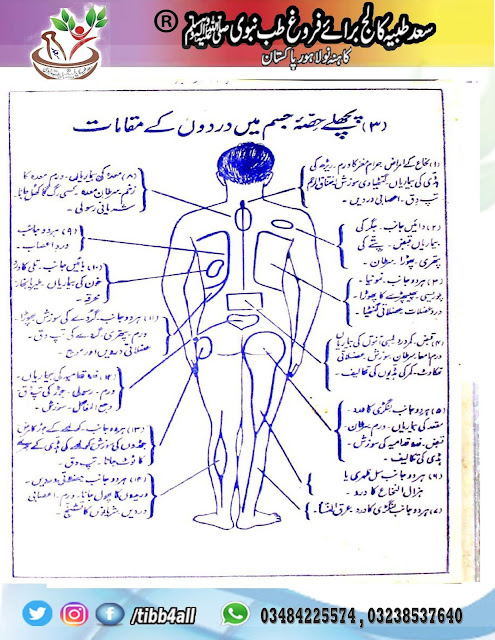 سعد طبیہ کالج برائے فروغ طب نبوی ﷺ ®
کاہنہ نو لاہور پاکستان
(۳) پچھلے حصۂ جسم میں دردوں کے مقامات
(۱) نخاع کے امراض، حرام مغز کا ورم۔ ریڑھ کی
ہڈی کی بیماریاں۔ گنٹھیاوی سوزش
تپ دق۔ اعصابی دردیں۔
(۲) دائیں جانب۔ جگر کی
بیماریاں قبض۔ پتے کی
پتھری، پھوڑا۔ سرطان۔
(۳) ہر دو جانب۔ نمونیا۔
پلورسی، پھیپھڑے کا پھوڑا
درد عضلات، عضلاتی گنٹھیا۔
(۴) قبض، گردہ
ورم امعا، سرطان، سوزش، عضلاتی
تھکاوٹ، کمر کی ہڈیوں کی تکالیف۔
(۵) ہر دو جانب لنگڑی کا درد۔
مقعد کی بیماریاں۔ ورم۔ سرطان
قبض، غدہ قدامیہ کی سوزش۔
ہڈی کی تکالیف۔
(۶) ہر دو جانب
ہزال النخاع کا درد۔
(۷) ہر دو جانب لنگڑی کا درد۔ عرق النسا۔
(۸) معدہ کی بیماریاں۔ ورم معدہ کا
زخم، سرطان معدہ۔ کسی رگ کا کھل جانا
شریانی رسولی۔
(۹) ہر دو جانب
درد اعصاب۔
(۱۰) بائیں جانب۔ تلی کا ورم
خون کی بیماریاں۔ ملیریا بخار
محرقہ۔
(۱۱) ہر دو جانب۔ گردے کی سوزش، پھوڑا
ورم۔ پتھری، گردے کی تپ دق۔
عضلاتی دردیں اور موچ۔
(۱۲) غدہ قدامیہ کی بیماریاں۔
ورم۔ رسولی۔ جوڑ کی تپ دق
وجع المفاصل۔ سوزش۔
(۱۳) ہر دو جانب۔ کولھے کے جوڑ کا مرض
جوڑوں کی سوزش، کولھے کی ہڈی کے سرے
کا ٹوٹ جانا۔ تپ دق۔
(۱۴) ہر دو جانب عضلاتی دردیں۔
وریدوں کا پھول جانا۔ ورم۔ اعصابی
دردیں، شریانوں کا تشنج
/tibb4all 03484225574, 03238537640